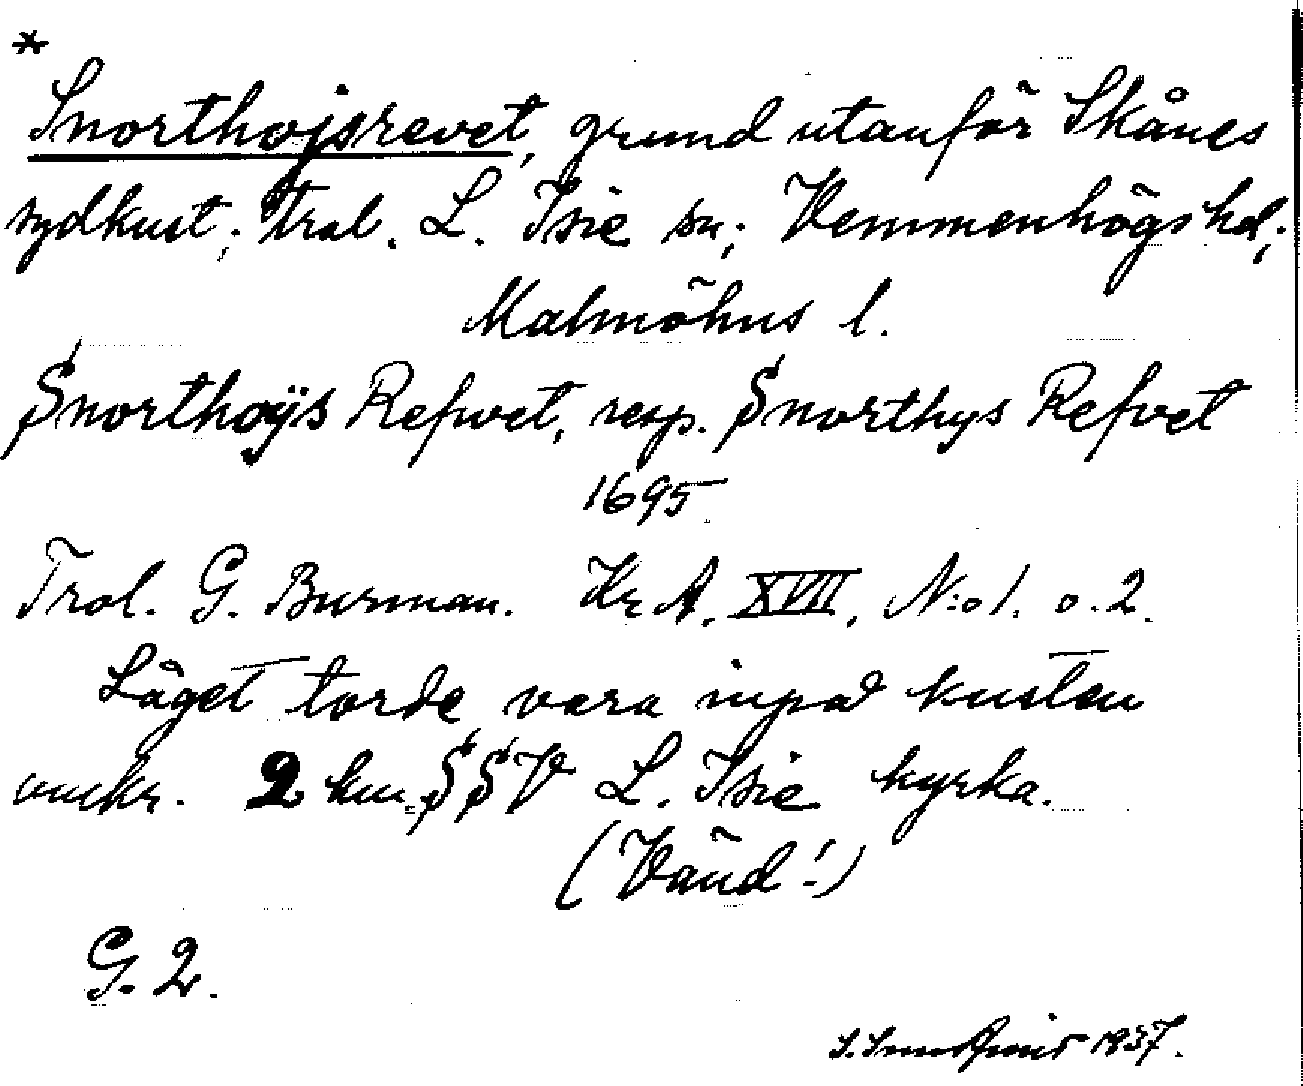 *
Snorthojsrevet, grund utanför Skånes
sydkust; trol. L. Isie sn; Vemmenhögs hd;
Malmöhus l.
Snorthoÿs Refwet, resp. Snorthys Refvet
1695
Trol. G. Burman. Kr A. XVII, N:o 1. o. 2.
Läget torde vara inpå kusten
omkr. 2 km. SSV L. Isie kyrka.
(Vänd!)
G. 2.
1937.